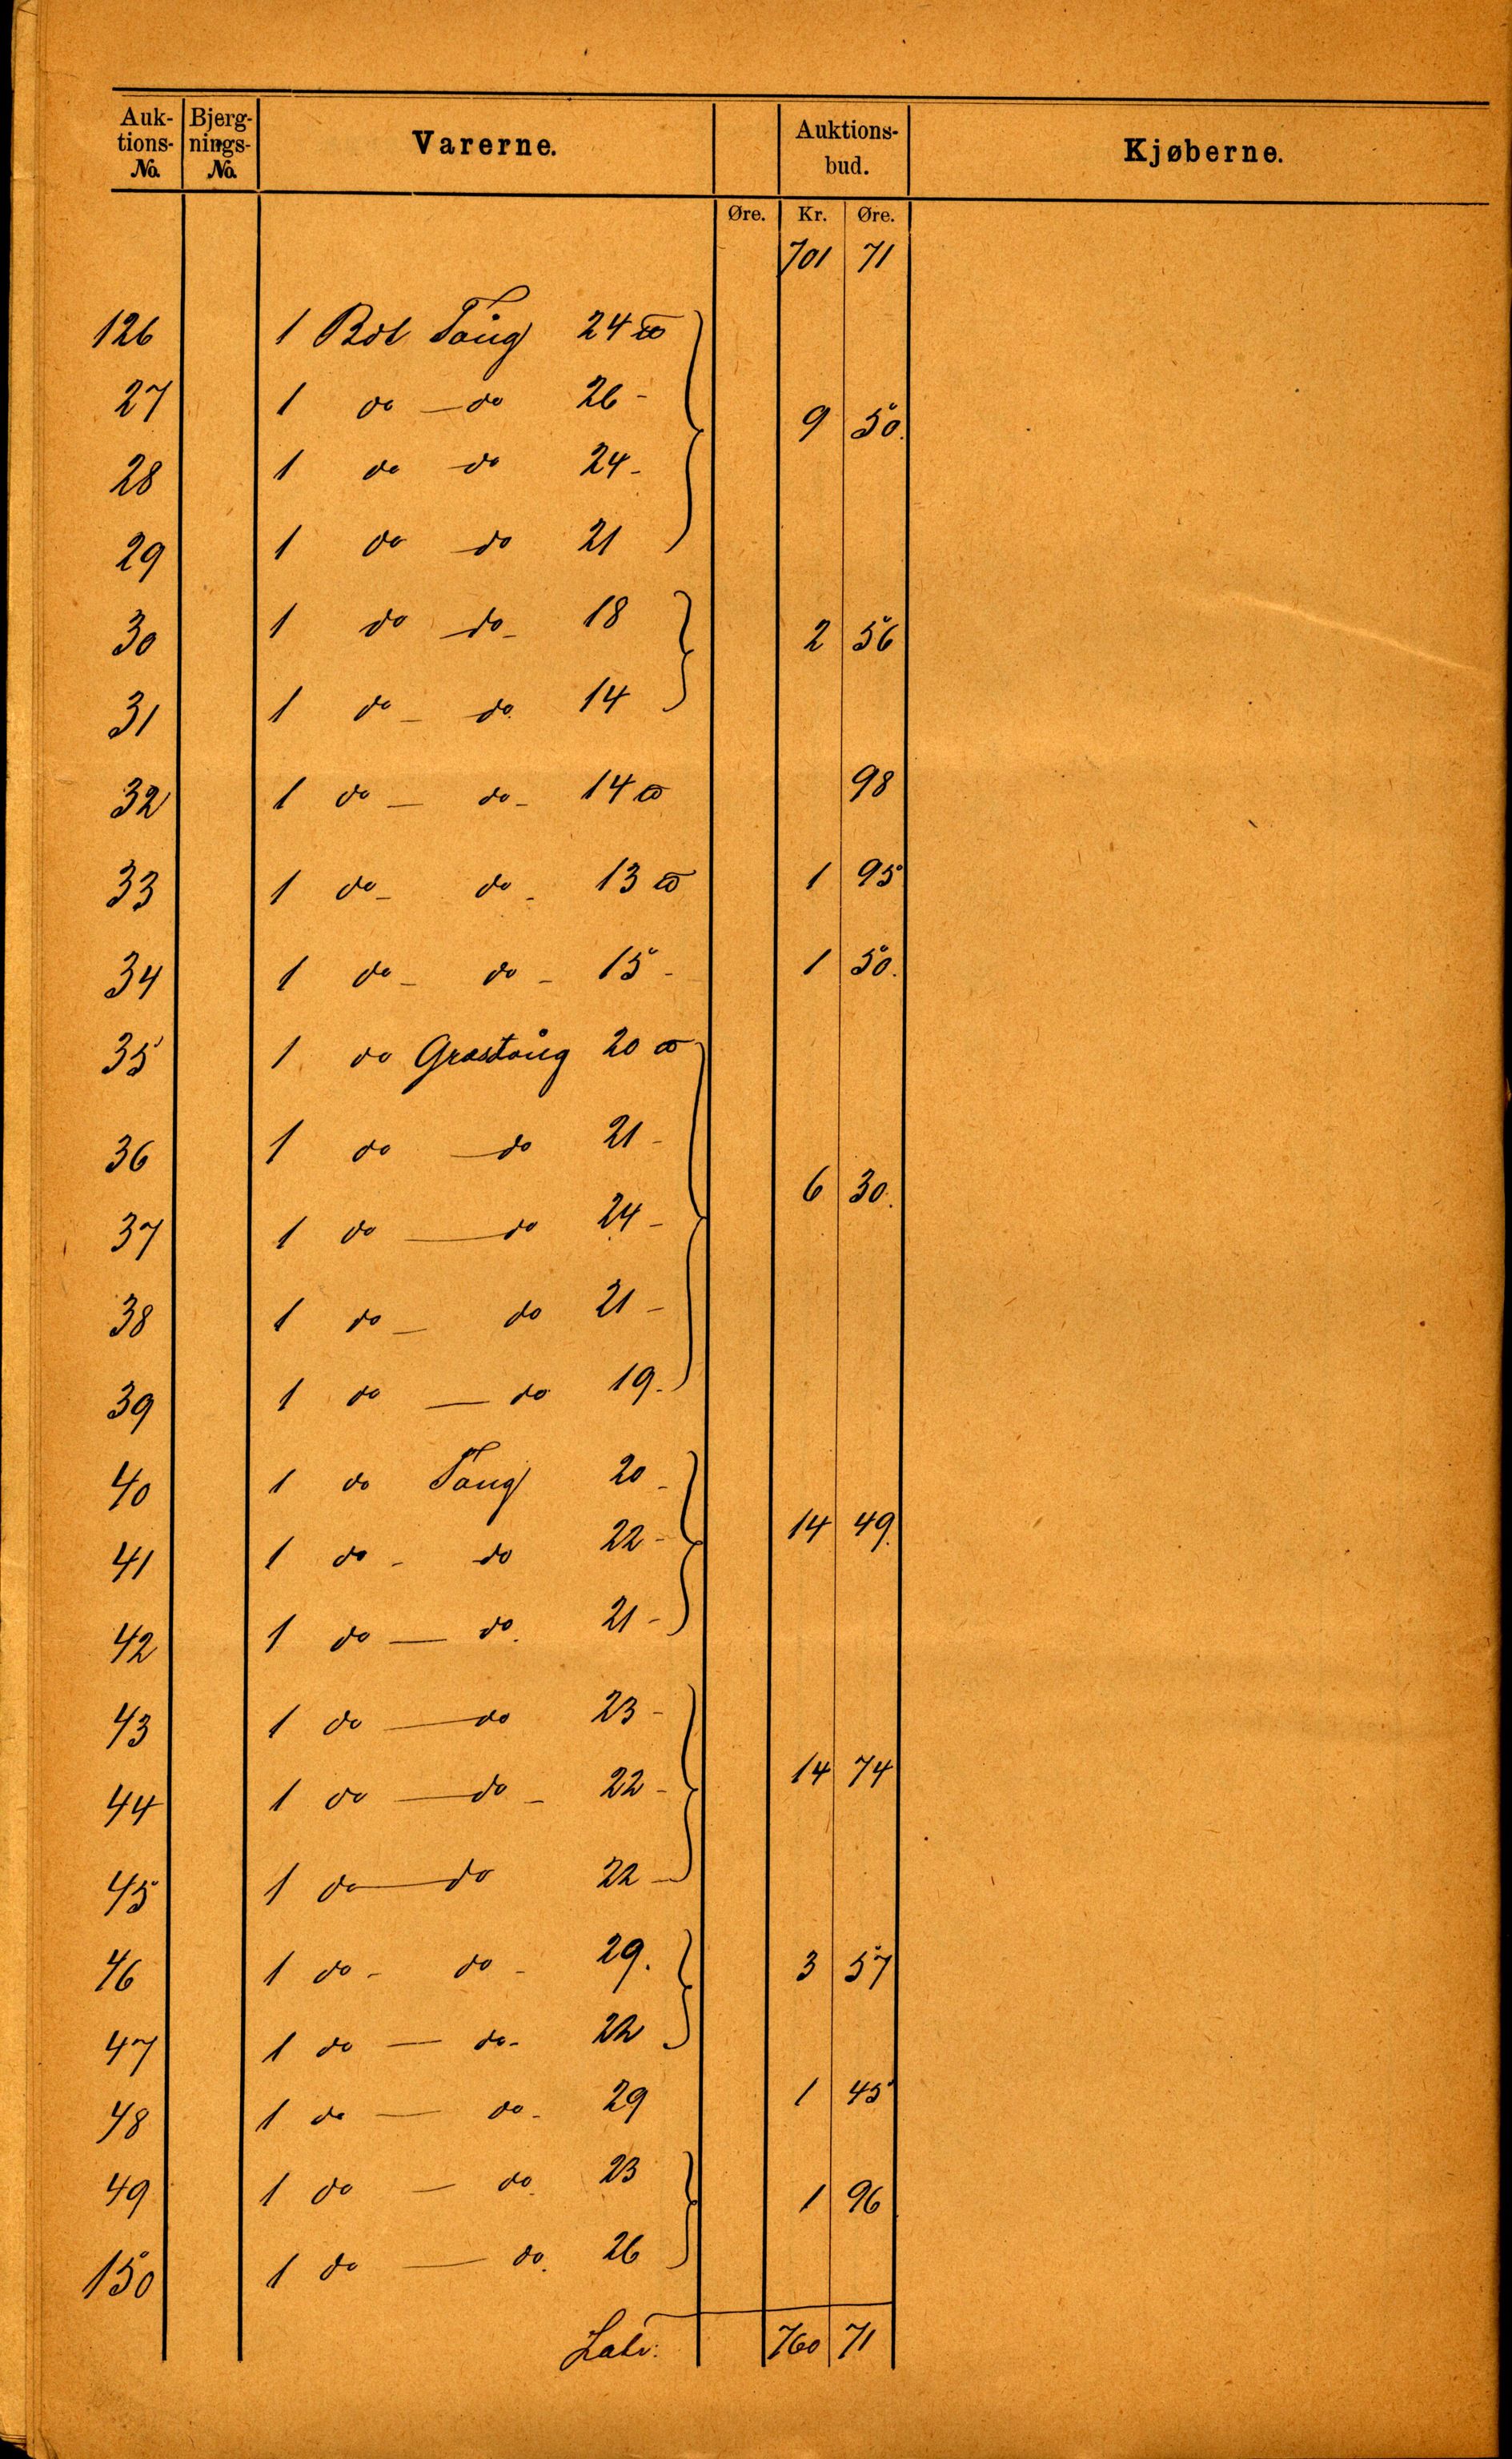 Auk-tions-No. Bjerg-nings-No. Varerne. Auktions-bud. Kjøberne.
Øre. Kr. Øre.
701 71
126 1 Bdt Taug 24 ℔
27 1 do — do 26 -
9 50.
28 1 do do 24 -
29 1 do — do 21
30 1 do — do - 18 2 56
31 1 do — do. 14
32 1 do — do - 14 ℔ 98
33 1 do - do - 13 ℔ 1 95
34 1 do - do - 15 - 1 50.
35 1 do Græstaug 20 ℔
36 1 do — do 21 -
6 30.
37 1 do — do 24 -
38 1 do — do 21 -
39 1 do — do 19 -
40 1 do Taug 20 -
14 49.
41 1 do - do 22 -
42 1 do — do. 21 -
43 1 do — do 23 -
44 1 do — do - 22 - 14 74
45 1 do — do 22 -
46 1 do - do - 29. 3 57
47 1 do — do - 22
48 1 do — do - 29 1 45
49 1 do — do. 23 1 96
150 1 do — do. 26
Latr: 760 71